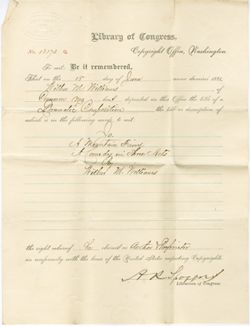 Library of Congress,
No. 13173
Copyright Office, Washington
To wit: Be it remembered,
That on the 15 day of June anno domini 1882
Willis M. Williams
of have deposited in this Office the title of a
Dramatic Composition the title or description of
which is in the following words, to wit:
A Mountain
A Comedy in Acts
by
Willis M. Williams
the right whereof he claims as Author Proprietor
in conformity with the laws of the United States respecting Copyrights.
A. R. Spofford
Librarian of Congress.